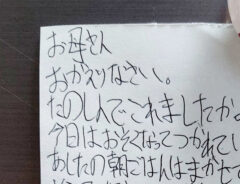 お母さん
おかえりなさい。
たのしんでこれましたか
今日はおそくなってつかれてい
あしたの朝ごはんはまかせて